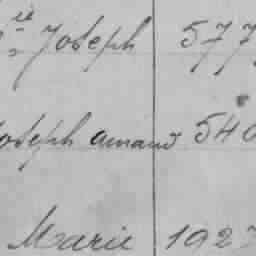 ie Joseph 577
Joseph amand 540
Marie 1927